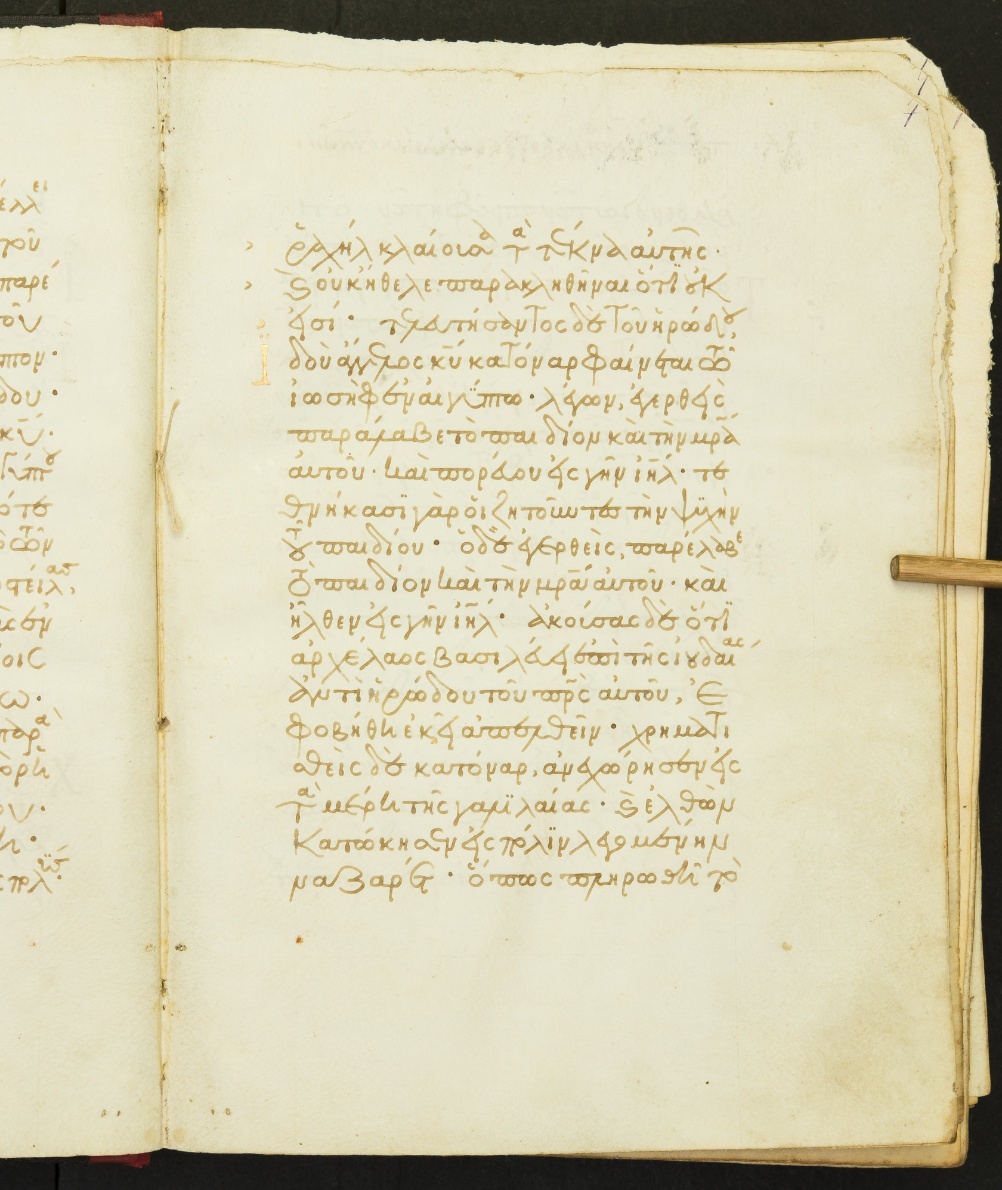 ει
ελλ
που
παρέ
του
πον·
δου·
κυ·
ότε
ποιεῖλ
οις
ω·
παρ
ον·
ῥαχὴλ κλαίουσα τὰ τέκνα αὐτῆς·
ϗ οὐκ ἤθελε παρακληθῆναι ὅτι οὐκ
εἰσί· τελευτήσαντος δὲ τοῦ ἡρώδου,
ἰδοὺ ἄγγελος κυ κατόναρ φαίνεται τῶ
ἰωσὴφ ἐν αἰγύπτω· λέγων, ἐγερθεὶς
παράλαβε τὸ παιδίον καὶ τὴν μρα
αὐτοῦ· καὶ πορεύου εἰς γῆν ιηλ· τε
θνήκασι γὰρ οἱ ζητοῦντες τὴν ψυχὴν
τοῦ παιδίου· ὁ δὲ ἐγερθεὶς, παρέλαβε
τὸ παιδίον καὶ τὴν μρα αὐτοῦ· καὶ
ἦλθεν εἰς γῆν ιηλ· ἀκούσας δὲ ὅτι
ἀρχέλαος βασιλεύει ἐπὶ τῆς ἰουδαίας
ἀντὶ ἡρώδου τοῦ πρς αὐτοῦ, ἐ
φοβήθη ἐκεῖ ἀπελθεῖν· χρηματι
σθεὶς δὲ κατόναρ, ἀνεχώρησεν εἰς
τὰ μέρη τῆς γαλιλαίας· ϗ ἐλθὼν
κατώκησεν εἰς πόλιν λεγομένην
ναζαρέτ· ὅπως πληρωθῆ τὸ